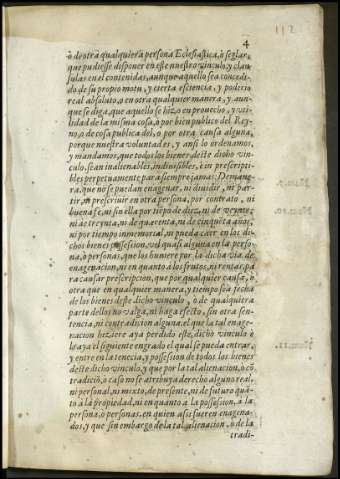 112
4
ò de otra qualquiera persona Eclesiastica, ò seglar,
que pudiesse disponer en este nuestro vinculo, y clau
sulas en el contenidas, aunque aquello sea concedi
do, de su propio motu, y cierta esciencia, y poderio
real absoluto, ò en otra qualquier manera, y aun-
que se diga, que aquello se hizo en prouecho, y vti-
lidad de la misma cosa, ò por bien publico del Rey-
no, ò de cosa publica del, o por otra causa alguna,
porque nuestra voluntad es, y ansi lo ordenamos,
y mandamos, que todos los bienes deste dicho vin-
culo, sean inalienables, indiuisibles, è imprescripti-
bles perpetuamente para siempre jamas: De mane-
ra, que no se puedan enagenar, ni diuidir, ni par-
tir, ni prescriuir en otra persona, por contrato, ni
buena fe, ni sin ella por tiẽpo de diez, ni de veynte,
ni de treynta, ni de quarenta, ni de cinquẽta años,
ni por tiempo inmemorial, ni pueda caer en los di-
chos bienes possession, vel quasi alguna en la perso-
na, ò personas, que los huuiere por la dicha via de
enagenacion, ni en quanto à los frutos, ni rentas, pa
ra causar prescripcion, que por qualquier causa, ò
otra que en qualquier manera, y tiempo sea fecha
de los bienes deste dicho vinculo, o de qualquiera
parte dellos no valga, ni haga efecto, sin otra sen-
tencia, ni contradiston alguna, el que la tal enage-
nacion hiziere aya perdido este, dicho vinculo è
le aya el siguiente en grado el qual se pueda entrar,
y entre en la tenecia, y possession de todos los bienes
deste dicho vinculo, y que por la tal alienacion, o cõ
tradiciõ, ò caso no se atribuya derecho alguno real,
ni personal, ni mixto, de presente, ni de futuro quã-
to à la propiedad, ni en quanto à la possession, à la
persona, ò personas, en quien assi fueren enagena-
dos, y que sin embargo de la tal alienacion, o de la
tradi-